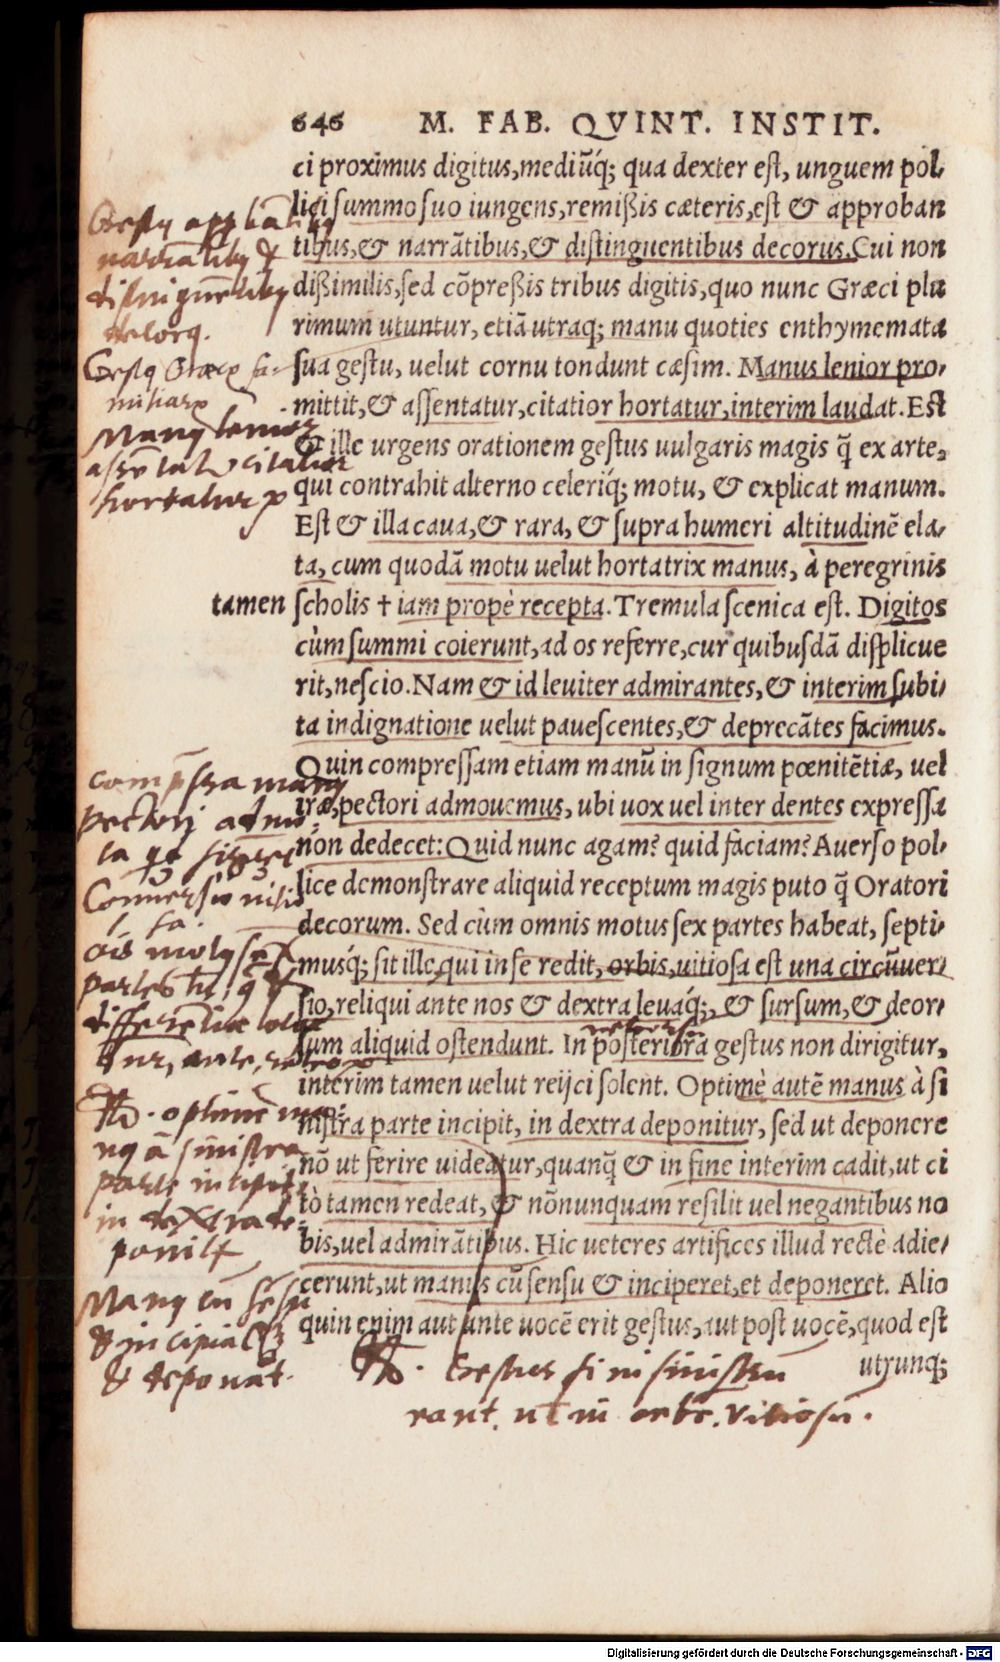 646 M. FAB. QVINT. INSTIT.
ci proximus digitus,mediūq́; qua dexter est, unguem pol-
lici summo suo iungens,remißis cæteris,est & approban
tibus,& narrātibus,& distinguentibus decorus.Cui non
dißimilis,sed cōpreßis tribus digitis,quo nunc Græci plu
rimum utuntur, etiā utraq; manu quoties enthymemata
sua gestu, uelut cornu tondunt cæsim. Manus lenior pro-
mittit,& assentatur,citatior hortatur,interim laudat.Est
& ille urgens orationem gestus uulgaris magis q̄ ex arte,
qui contrahit alterno celeriq́; motu, & explicat manum.
Est & illa caua,& rara, & supra humeri altitudinē ela-
ta, cum quodā motu uelut hortatrix manus, à peregrinis
tamen scholis † iam propè recepta. Tremula scenica est. Digitos
cùm summi coierunt,ad os referre,cur quibusdā displicue
rit,nescio.Nam & id leuiter admirantes,& interim subi-
ta indignatione uelut pauescentes,& deprecātes facimus.
Quin compressam etiam manū in signum pœnitētiæ, uel
iræ,pectori admouemus, ubi uox uel inter dentes expressa
non dedecet: Quid nunc agam? quid faciam? Auerso pol-
lice demonstrare aliquid receptum magis puto q̄ Oratori
decorum. Sed cùm omnis motus sex partes habeat, septi-
musq́; sit ille,qui in se redit, orbis,uitiosa est una circūuer-
sio,reliqui ante nos & dextra leuaq́;, & sursum,& deor-
sum aliquid ostendunt. In posteriora gestus non dirigitur,
interim tamen uelut reijci solent. Optimè autē manus à si
nistra parte incipit, in dextra deponitur, sed ut deponere
nō ut ferire uideatur,quanq̄ & in fine interim cadit,ut ci
tò tamen redeat, & nōnunquam resilit uel negantibus no
bis,uel admirātibus. Hic ueteres artifices illud rectè adie-
cerunt,ut manus cū sensu & inciperet,et deponeret. Alio
quin enim aut ante uocē erit gestus,aut post uocē,quod est
utrunq;
narrātibꝰ &
decorꝰ.
Manꝰ lenior
citatior
hortatur
manꝰ
pectori admo-
optime ma-
nꝰ a sinistra
parte incipit
in dextra de-
ponitur
Manꝰ cū sēsu
& incipiat
& deponat.
Gestus si in sinistrū
ut in orbē. vitiosū.
Digitalisierung gefördert durch die Deutsche Forschungsgemeinschaft - DFG